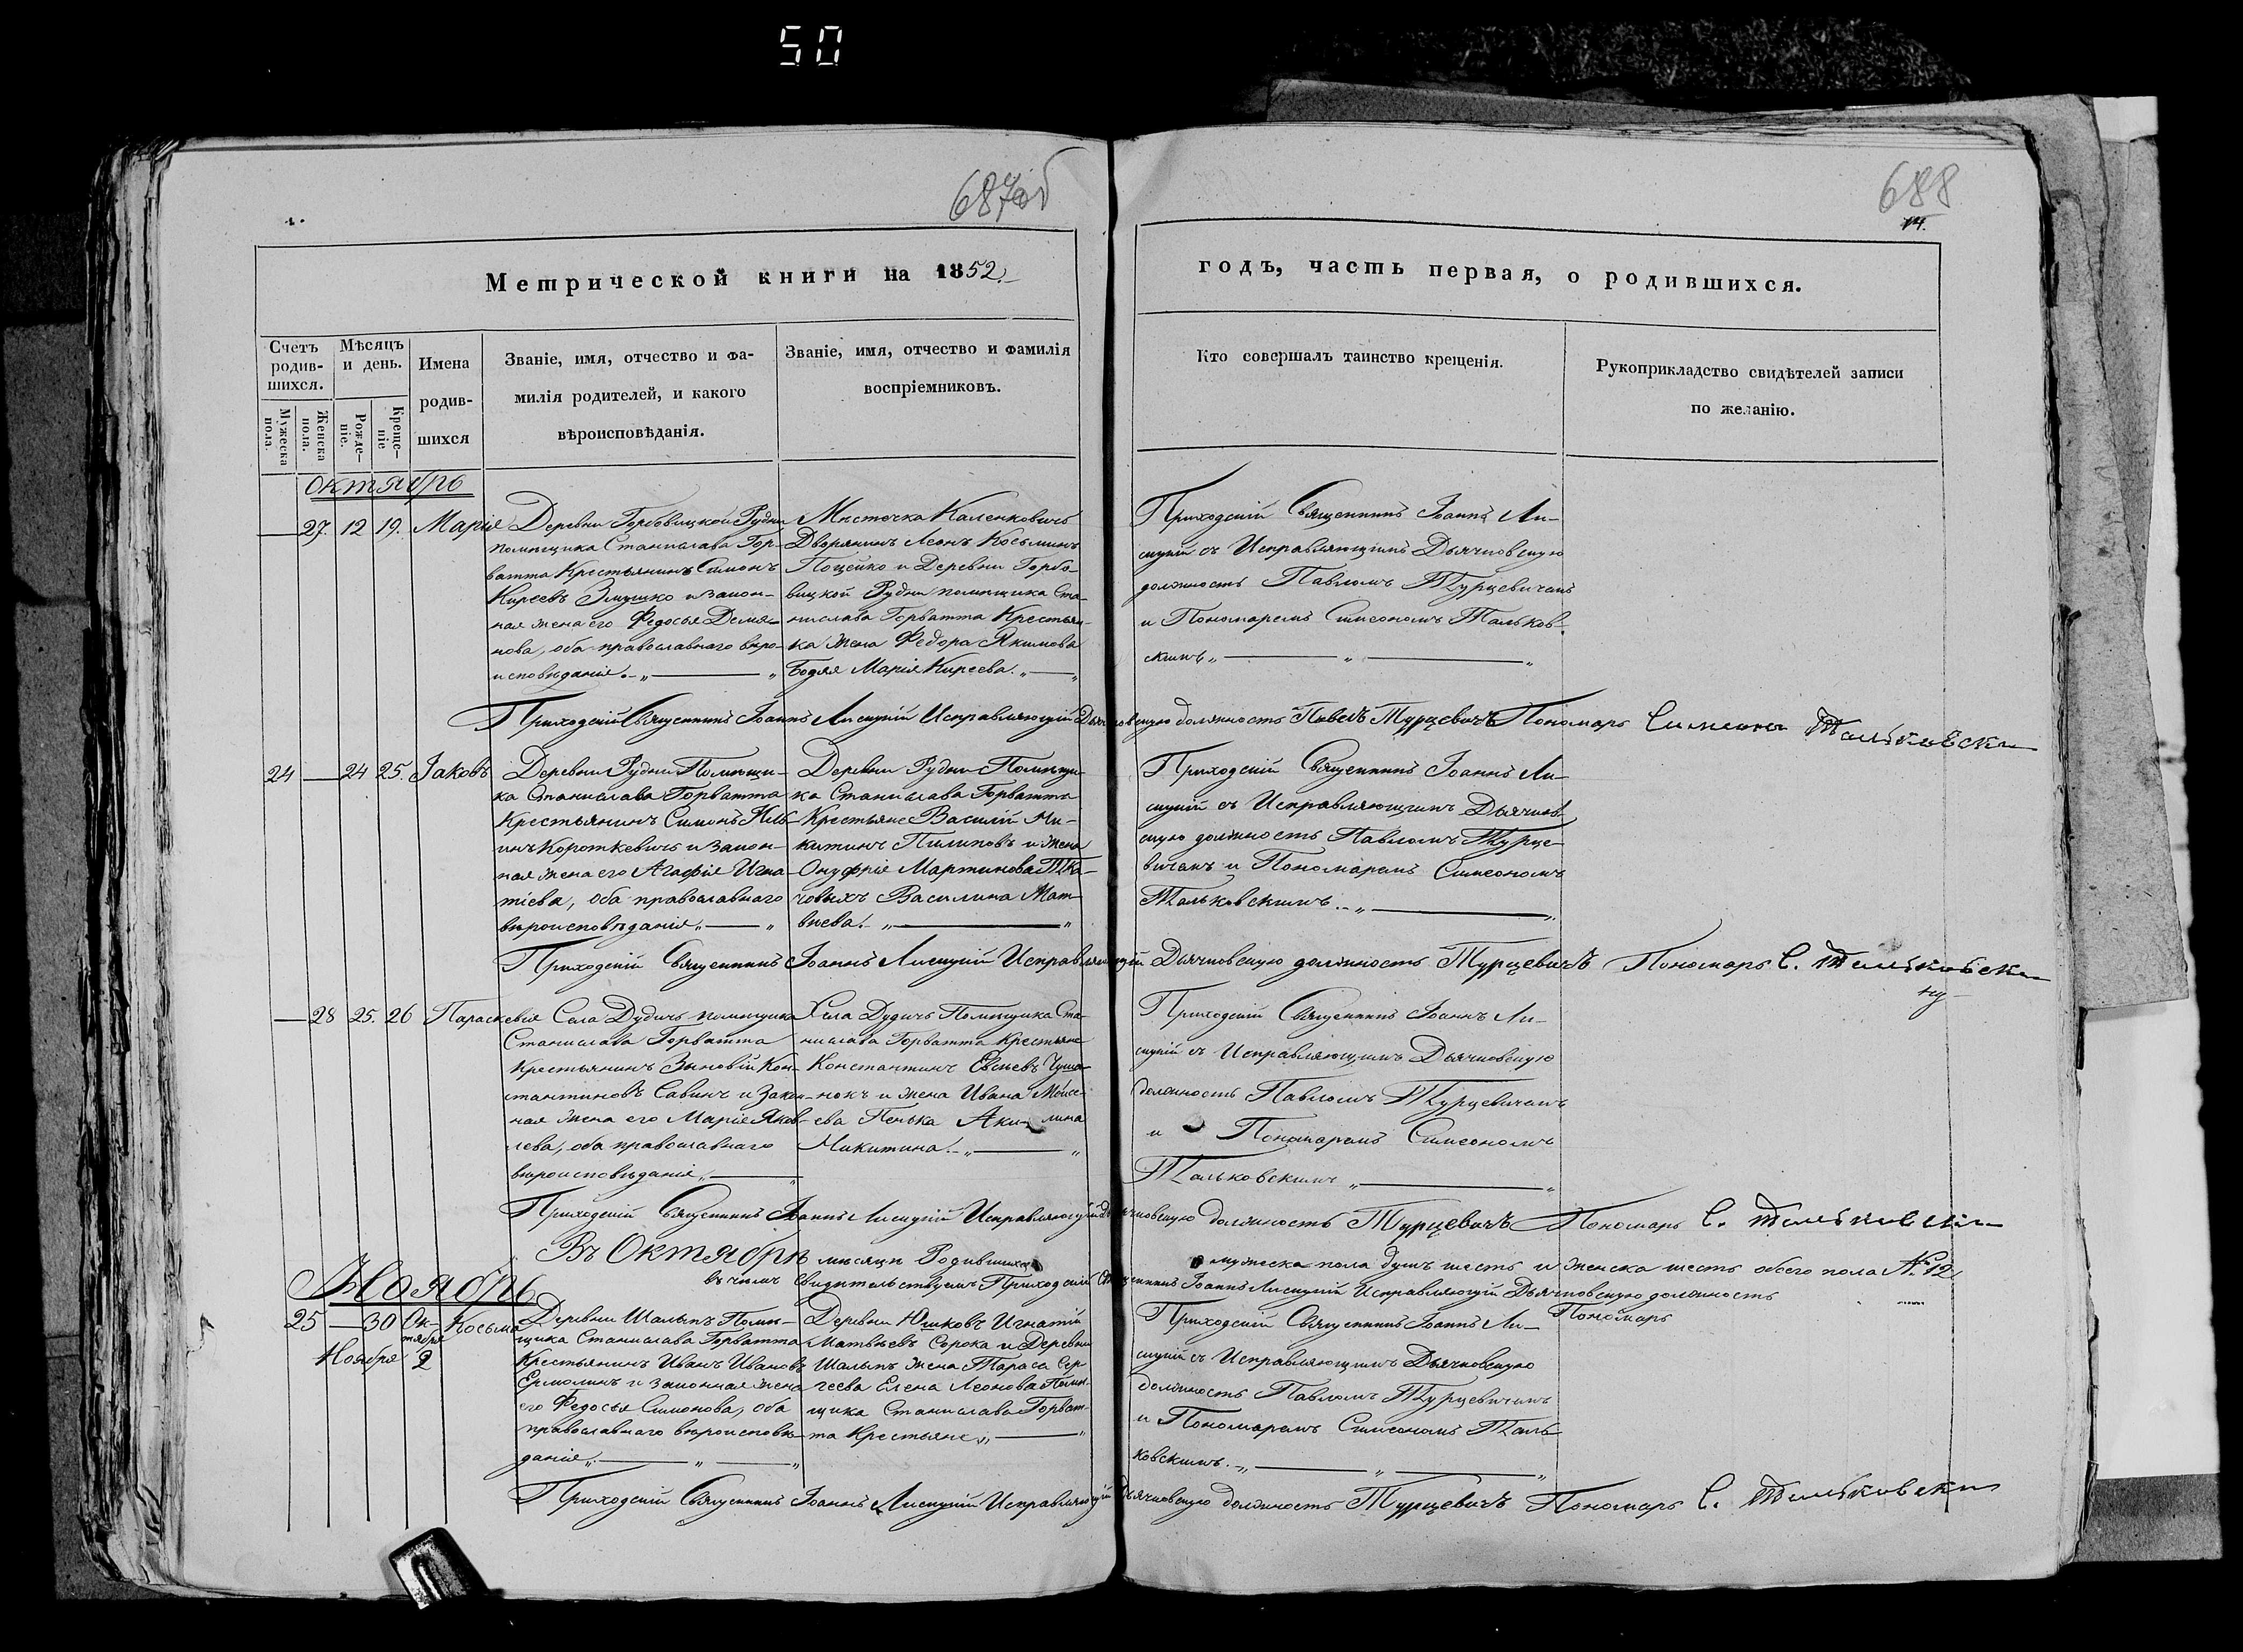 50
687об
688
14.
Метрической книги на 1852.
годъ, часть первая, о родившихся.
Счетъ родив-шихся.
Мужеска пола.
Женска пола.
Мѣсяцъ и день.
Рожде-ніе.
Креще-ніе
Имена родив-шихся
Званіе, имя, отчество и фа-
милія родителей, и какого
вѣроисповѣданія.
Званіе, имя, отчество и фамилія
воспріемниковъ.
Кто совершалъ таинство крещенія.
Рукоприкладство свидѣтелей записи
по желанію.
Октябрь
27. 12 19. Марія
Деревни Горбовицкой Рудни
помѣщика Станислава Гор-
ватта Крестьянинъ Симонъ
Киреевъ и закон-
ная жена его Федосья Демья-
нова, оба православнаго вѣро-
исповѣданія.
Мѣстечка Каленковичъ
Дворянинъ Леонъ Косьминъ
Поцейко и Деревни Горбо-
вицкой Рудни помѣщика Ста-
нислава Горватта Крестьян-
ка жена Федора Якимова
Бодяя Марія Киреева.
Приходскій Священникъ Іоаннъ Ли-
сицкій съ Исправляющимъ Дьячковскую
должность Павломъ Турцевичемъ
и Пономаремъ Симеономъ Тальков-
скимъ
Приходскій Священникъ Іоаннъ Лисицкій Исправляющій Дьячковскую должность Павелъ Турцевичъ Пономарь Симеонъ Тальковски
24 24 25. Іаковъ
Деревни Рудни Помѣщи-
ка Станислава Горватта
Крестьянинъ Симонъ Иль-
инъ Короткевичъ и закон-
ная жена его Агафія Игна-
тіева, оба православнаго
вѣроисповѣданія
Деревни Рудни Помѣщи-
ка Станислава Горватта
Крестьяне Василій Ни-
китинъ Пилиповъ и жена
Онуфрія Мартинова Тка-
човыхъ Василина Мат-
вѣева.
Приходскій Священникъ Іоаннъ Ли-
сицкій съ Исправляющимъ Дьячков-
скую должность Павломъ Турце-
вичемъ и Пономаремъ Симеономъ
Тальковскимъ.
Приходскій Священникъ Іоаннъ Лисицкій Исправляющій Дьячковскую должность Турцевичъ Пономарь С. Тальковски
28 25. 26 Параскевія
Села Дудичъ помѣщика
Станислава Горватта
Крестьянинъ Зыновій Кон-
стантиновъ Савинъ и Закон-
ная жена его Марія Яков-
лева, оба православнаго
вѣроисповѣданія
Села Дудичъ Помѣщика Ста-
нислава Горватта Крестьяне
Константинъ Евсѣевъ Чума-
нокъ и жена Ивана Мойсе-
ева Пенька Акилина
Микитина.
Приходскій Священникъ Іоаннъ Ли-
сицкій съ Исправляющимъ Дьячковскую
должность Павломъ Турцевичемъ
и Пономаремъ Симеономъ
Тальковскимъ
Приходскій Священникъ Іоаннъ Лисицкій Исправляющій Дьячковскую должность Турцевичъ Пономарь С. Тальковски
Въ Октябрѣ мѣсяцѣ Родившихся мужеска пола душъ шесть и женска шесть обоего пола № 12
въ чемъ свидѣтельствуемъ Приходскій Священникъ Іоаннъ Лисицкій Исправляющій Дьячковскую должность
Пономарь
Ноябрь
25 30 Октября Косьма
Ноября 2
Деревни Шалыпъ Помѣ-
щика Станислава Горватта
Крестьянинъ Иванъ Ивановъ
Ермолинъ и законная жена
его Федосья Симонова, оба
православнаго вѣроисповѣ-
данія
Деревни Юшковъ Игнатій
Матвѣевъ Сорока и Деревни
Шалыпъ жена Тараса Сер-
геева Елена Леонова Помѣ-
щика Станислава Горват-
та Крестьяне
Приходскій Священникъ Іоаннъ Ли-
сицкій съ Исправляющимъ Дьячковскую
должность Павломъ Турцевичемъ
и Пономаремъ Симеономъ Таль-
ковскимъ.
Приходскій Священникъ Іоаннъ Лисицкій Исправляющій Дьячковскую должность Турцевичъ Пономарь С. Тальковски